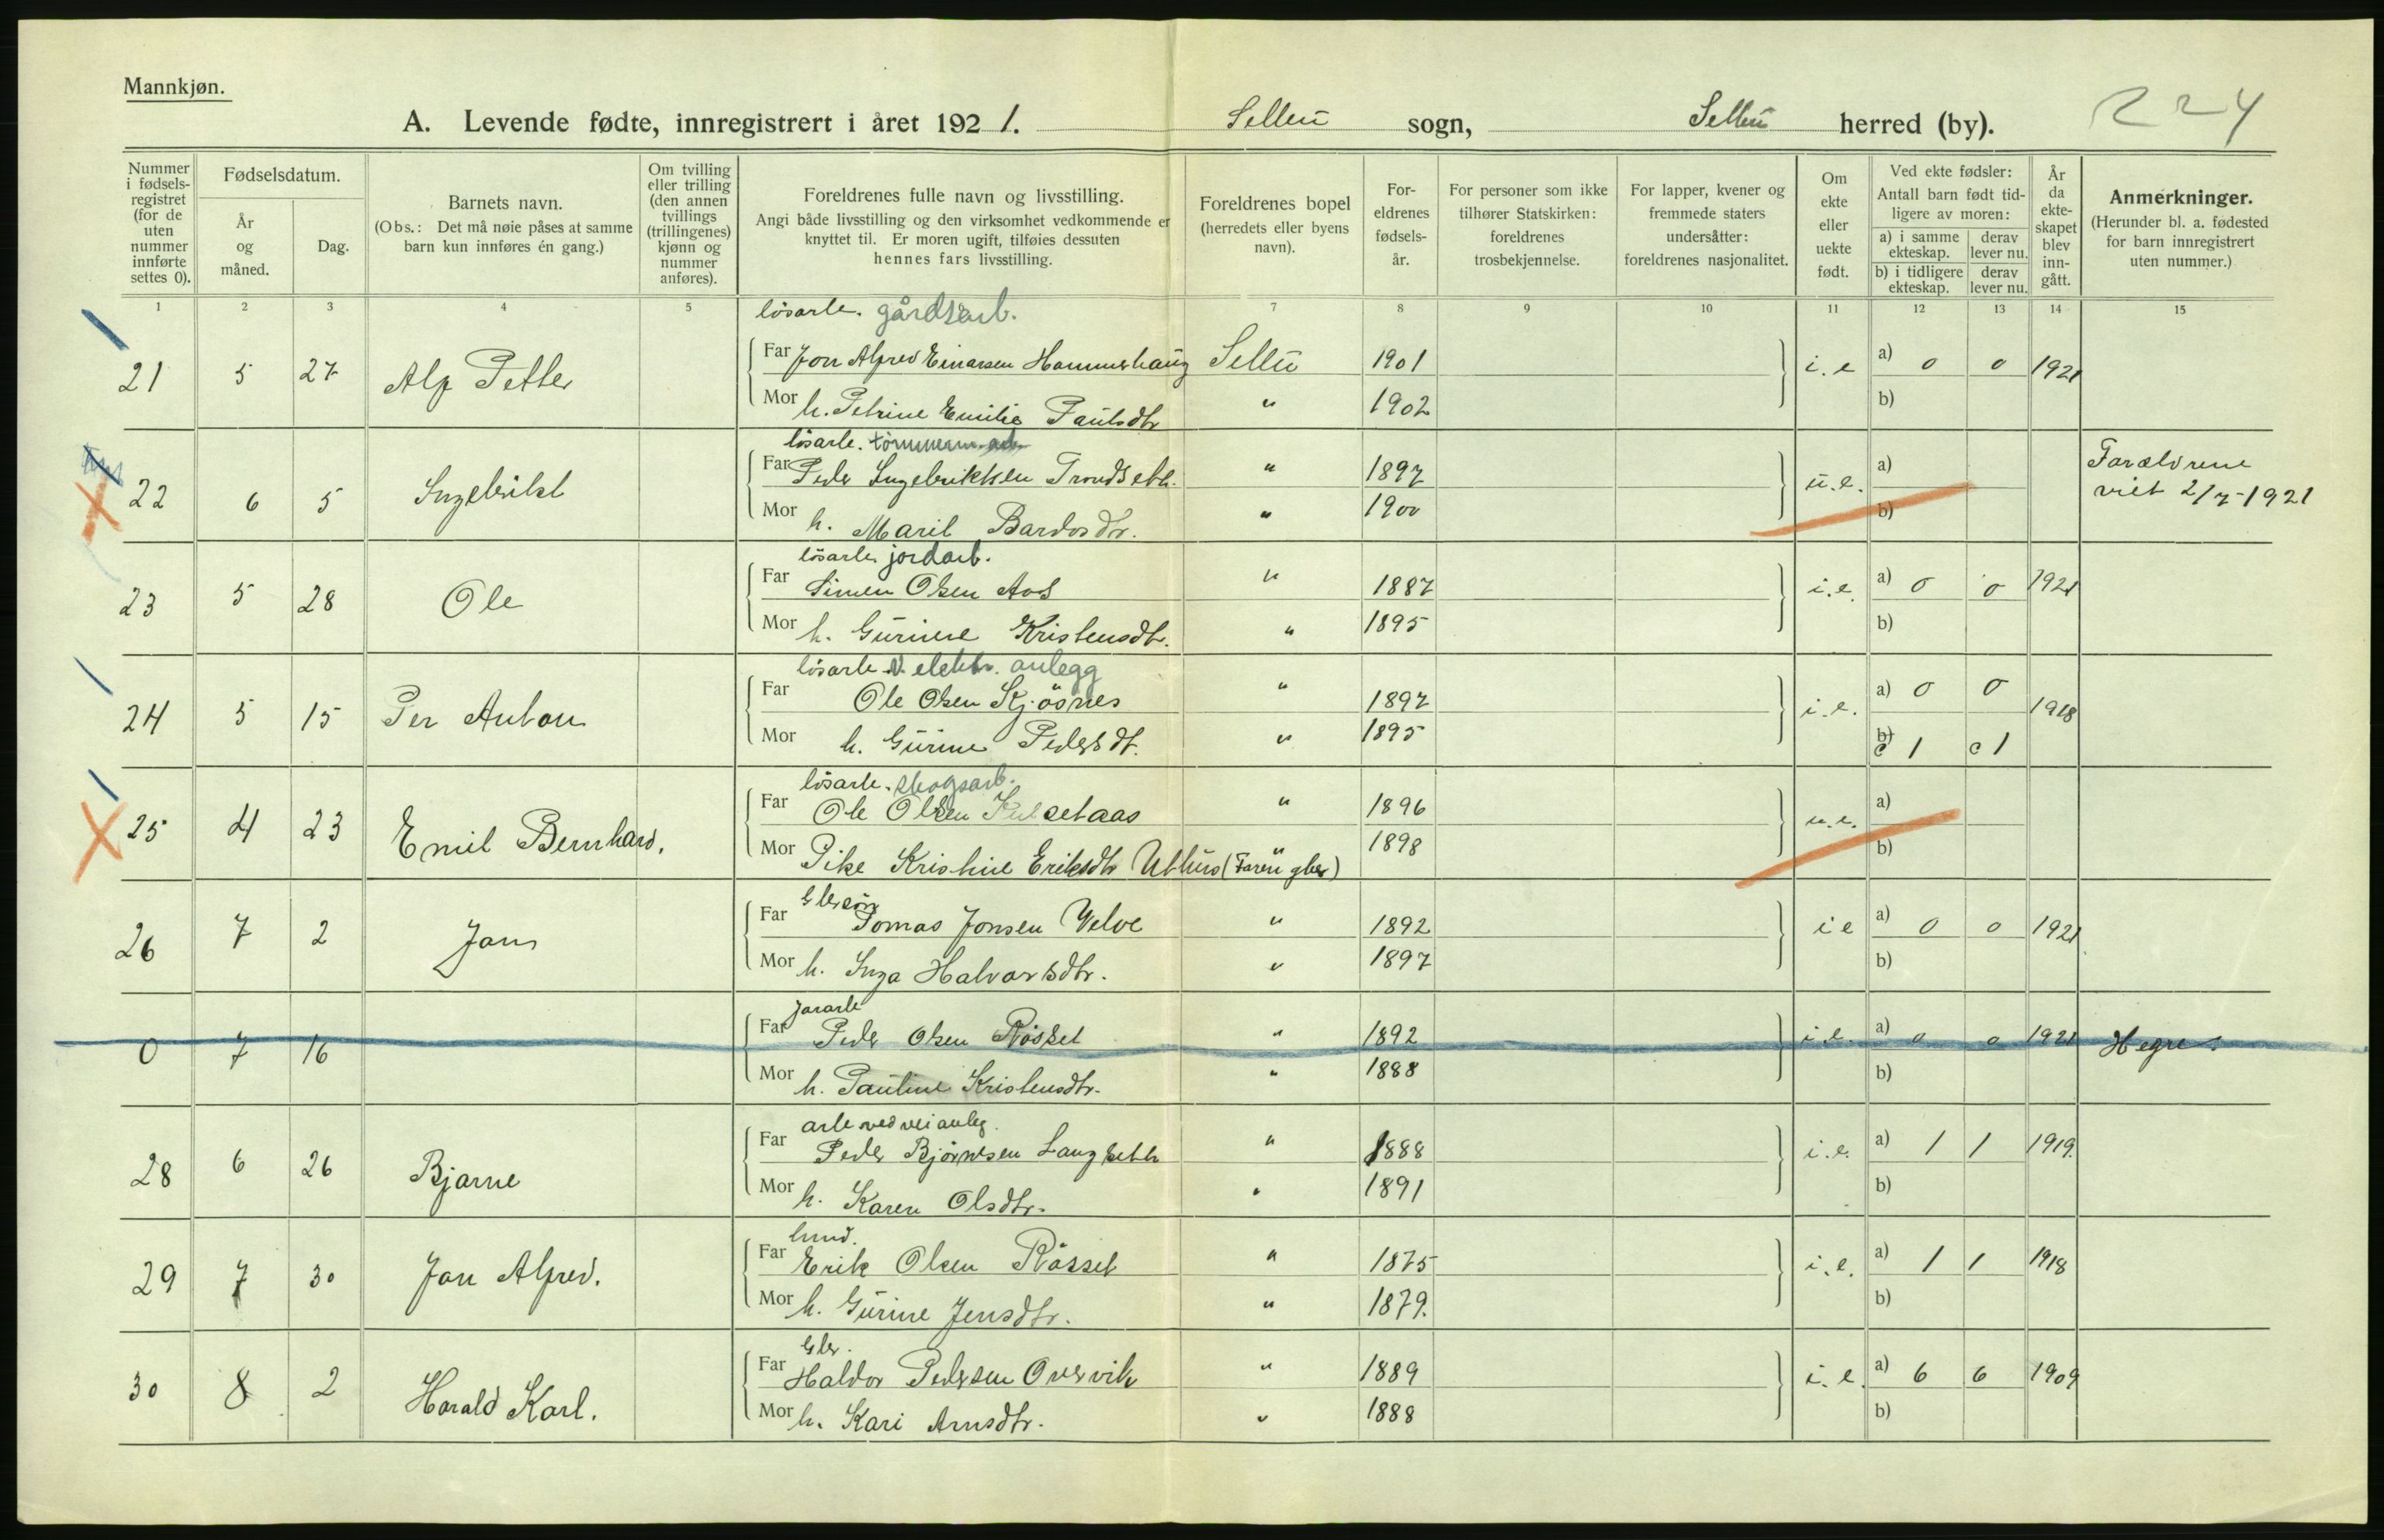 Mannkjøn.
A. Levende fødte, innregistrert i året 1921. Selbu sogn, Selbu herred (by). 224
Nummer i fødselsregistret (for de uten nummer innførte settes 0).
Fødselsdatum.
År og måned.
Dag.
Barnets navn.
(Obs.: Det må nøie påses at samme barn kun innføres én gang.)
Om tvilling eller trilling (den annen tvillings (trillingenes) kjønn og nummer anføres).
Foreldrenes fulle navn og livsstilling.
Angi både livsstilling og den virksomhet vedkommende er knyttet til. Er moren ugift, tilføies dessuten hennes fars livsstilling.
Foreldrenes bopel (herredets eller byens navn).
Foreldrenes fødselsår.
For personer som ikke tilhører Statskirken: foreldrenes trosbekjennelse.
For lapper, kvener og fremmede staters undersåtter: foreldrenes nasjonalitet.
Om ekte eller uekte født.
Ved ekte fødsler: Antall barn født tidligere av moren:
a) i samme ekteskap. derav lever nu.
b) i tidligere ekteskap. derav lever nu.
År da ekteskapet blev inngått.
Anmerkninger.
(Herunder bl. a. fødested for barn innregistrert uten nummer.)
1 2 3 4 5 7 8 9 10 11 12 13 14 15
lösarb. gårdsarb.
21 5 27 Alf Petter Far Jon Alfred Einarsen Hammerhaug Selbu 1901 i. e a) 0 0 1921
Mor h. Petrine Emilie Paulsdtr " 1902 b)
lösarb. tömmerm.arb.
22 6 5 Ingebrikt Far Peder Ingebriktsen Trondseth. " 1897 u. e. a) Forældrene
viet 2/7-1921
Mor h. Marit Bardosdtr. " 1900 b)
lösarb. jordarb.
23 5 28 Ole Far Simen Olsen Aas " 1887 i. e. a) 0 0 1921
Mor h. Gurine Kristensdtr. " 1895 b)
lösarb. v. elektr. anlegg
24 5 15 Per Anton Far Ole Olsen Kjösnes " 1897 i. e. a) 0 0 1918
Mor h. Gurine Pedersdt. " 1895 b) c 1 c 1
lösarb. skogsarb.
25 4 23 Emil Bernhard. Far Ole Olsen Kulsetaas " 1896 u. e. a)
Mor Pike Kristine Eriksdtr Uthus (Faren gbr) " 1898 b)
Gbrsön
26 7 2 Jon Far Tomas Jonsen Velve " 1892 i e a) 0 0 1921
Mor h. Inga Halvorsdtr. " 1897 b)
Jararb
0 7 16 Far Peder Olsen Rösset " 1892 i. e. a) 0 0 1921 Hegre.
Mor h. Pauline Kristensdtr. " 1888 b)
arb ved veianleg.
28 6 26 Bjarne Far Peder Björnsen Langseth " 1888 i. e. a) 1 1 1919.
Mor h. Karen Olsdtr. " 1891 b)
29 7 30 Jon Alfred. Far Erik Olsen Rösset " 1875 i. e. a) 1 1 1918
Mor h. Gurine Jensdtr. " 1879. b)
Gbr.
30 8 2 Harald Karl. Far Haldor Pedersen Overvik " 1889 i. e. a) 6 6 1909
Mor h. Kari Arnsdtr. " 1888 b)